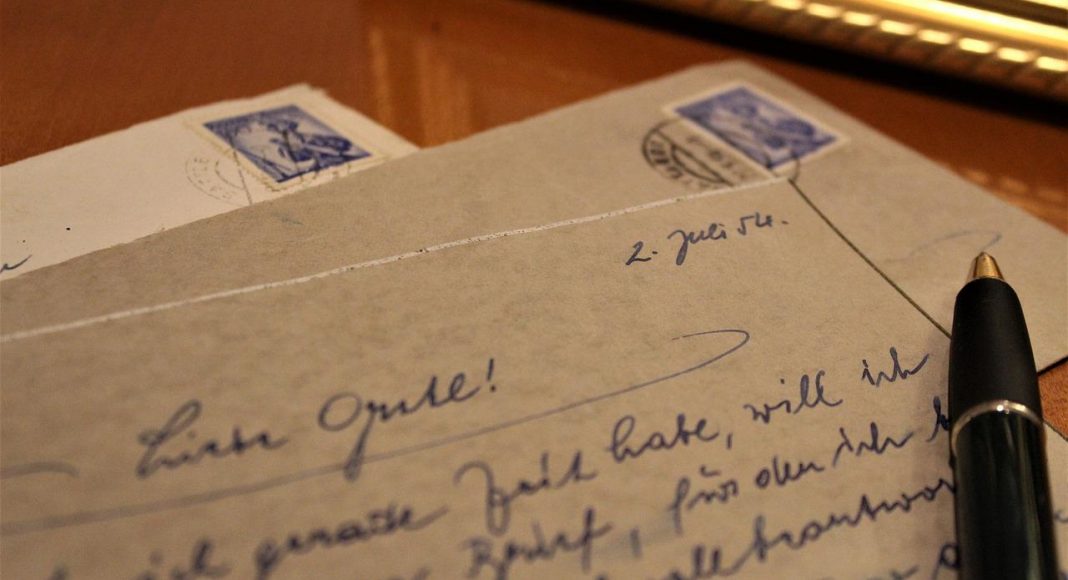 2. Juli 54.
Liebe Grete!
ich gerade Zeit habe, will ich
Brief, für den ich
beantwor